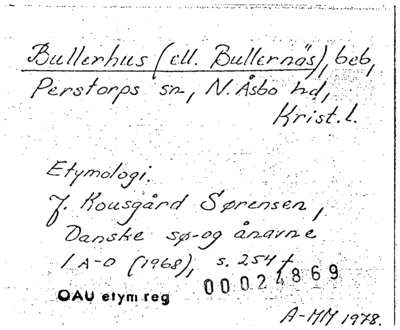 Bullerhus (ell. Bullernäs), beb,
Perstorps sn, N. Åsbo hd,
Krist. l.
Etymologi.
J. Kousgård Sørensen,
Danske sø- og ånavne
1 A-D (1968), s. 254 f
00024869
OAU etym reg
A-MM 1978.